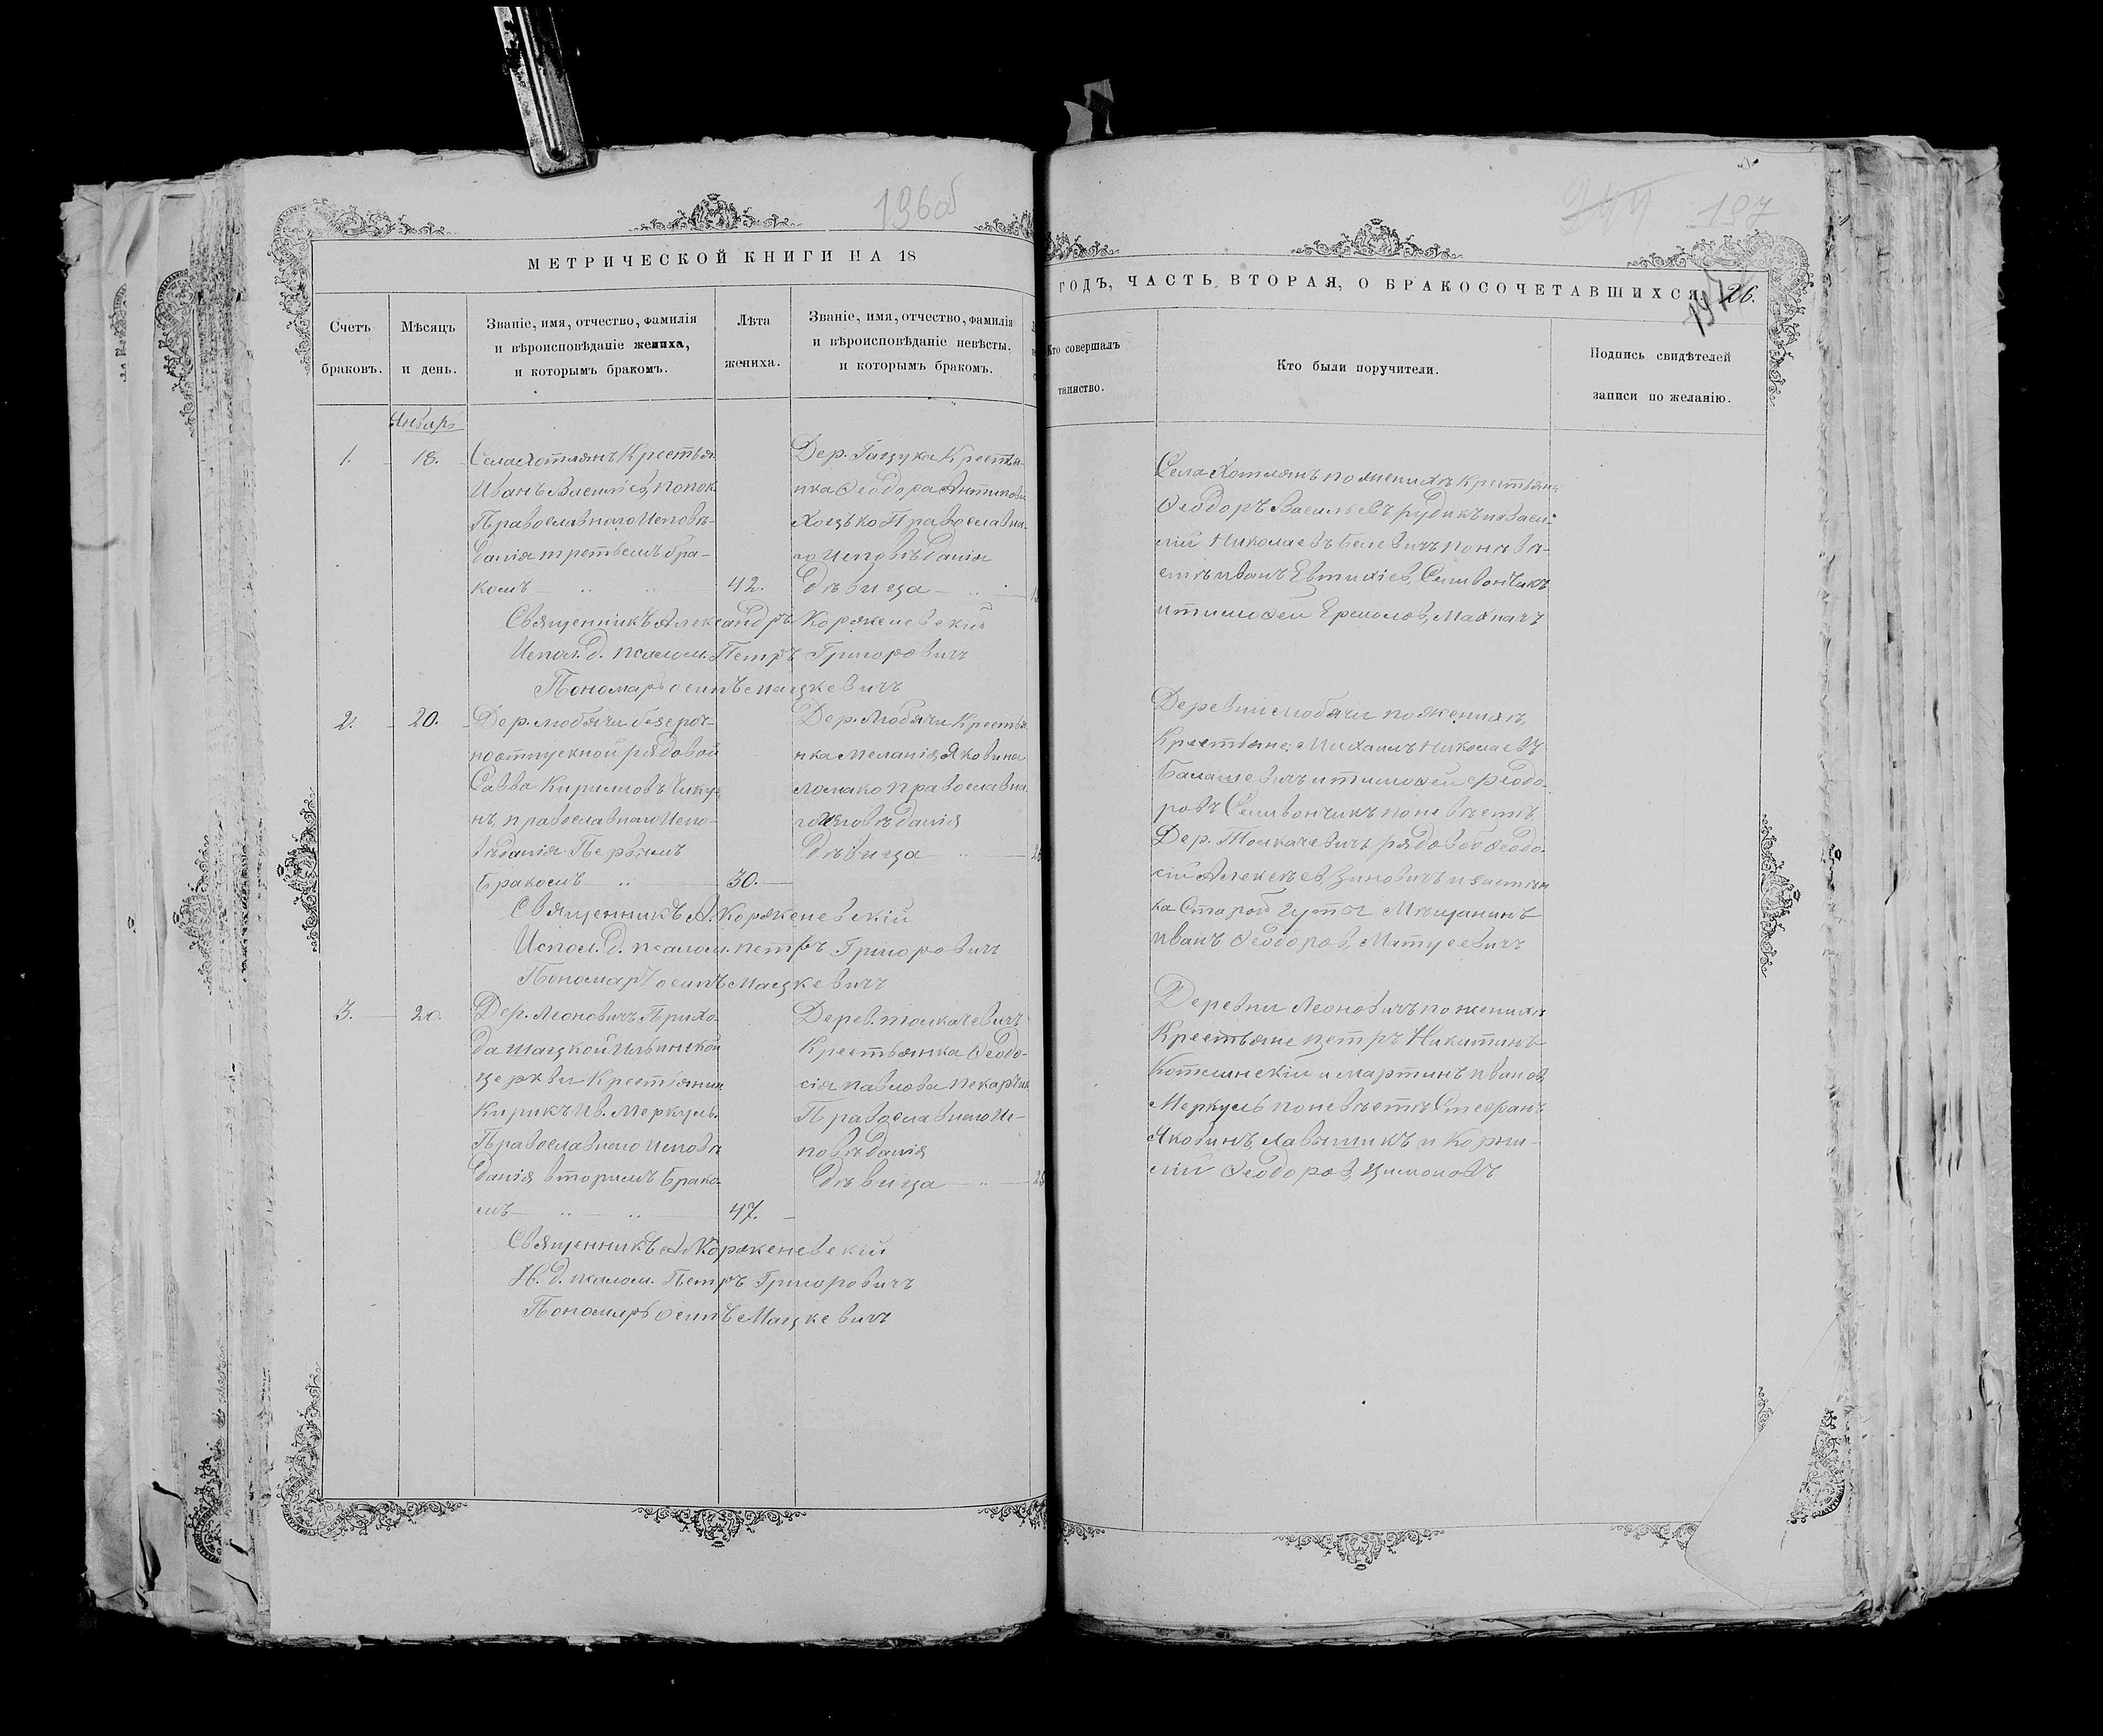 196об
МЕТРИЧЕСКОЙ КНИГИ НА 18
Счетъ
браковъ.
Мѣсяцъ
и день.
Званіе, имя, отчество, фамилія
и вѣроисповѣданіе жениха,
и которымъ бракомъ.
Лѣта
жениха.
Званіе, имя, отчество, фамилія
и вѣроисповѣданіе невѣсты,
и которымъ бракомъ.
Январь
1.
18.
Села Хотлянъ Крестья.
Иванъ Васильев, попок
Православнаго Исповѣ-
данія третьемъ бра-
комъ
42.
Дер. Гацука Крестья-
нка Феодора Антипова
Хоцько Православна-
го Исповѣданія
дѣвица
Священникъ Александръ Корженевскій
Испол. д. псалом. Петръ Григоровичъ
Пономарь Осипъ Мацкевичъ
2.
20.
Дер. Любячи безсроч-
ноотпускной рядовой
Савва Кирилловъ Чику-
нъ, православнаго Испо-
вѣданія Первымъ
Бракомъ
30.
Дер. Любячи Крестья-
нка Меланія Яковина
Ломако Православна-
го Исповѣданія
дѣвица
Священникъ А. Корженевскій
Испол. д. псалом. Петръ Григоровичъ
Пономарь Осипъ Мацкевичъ
3.
20.
Дер. Леоновичъ Прихо-
да Шацкой Ильинской
церкви Крестьянин
Кирикъ Ив. Меркуль.
Православнаго Исповѣ
данія вторимъ Брако-
мъ
47.
Дерев. Толкачевичъ
Крестьянка Феодо-
сія Павлова Пекарчик
Православнаго Ис-
повѣданія
дѣвица
Священникъ А. Корженевскій
И. д. псалом. Петръ Григоровичъ
Пономарь Осипъ Мацкевичъ
197
ГОДЪ, ЧАСТЬ ВТОРАЯ, О БРАКОСОЧЕТАВШИХСЯ
26.
Кто совершалъ
таинство.
Кто были поручители.
Подпись свидѣтелей
записи по желанію.
Села Хотлянъ по женихѣ Крестьяне:
Феодоръ Васильевъ Рудикъ и Васи-
лій Николаевъ Белевичъ по невѣ-
стѣ Иванъ Евтихіев, Селивончикъ
и Тимофей Ермолов, Махначъ
Деревни Любячи по женихѣ,
Крестьяне: Михаилъ Николаевъ
Балашевичъ и Тимофей Феодо-
ровъ Селивончикъ по невѣстѣ
Дер. Толкачевичъ рядовой Феодо-
сій Алексѣев, Зиновичъ и застѣн
ка Старой Гуты Мѣщанинъ
Иванъ Феодоров, Матусевичъ
Деревни Леоновичъ по женихѣ
Крестьяне Петръ Никитинъ
Котлинскій и Мартинъ Иванов,
Меркуль по невѣстѣ Стефанъ
Яковинъ, Лавышикъ и Корни-
лій Феодоров, Цимоновъ